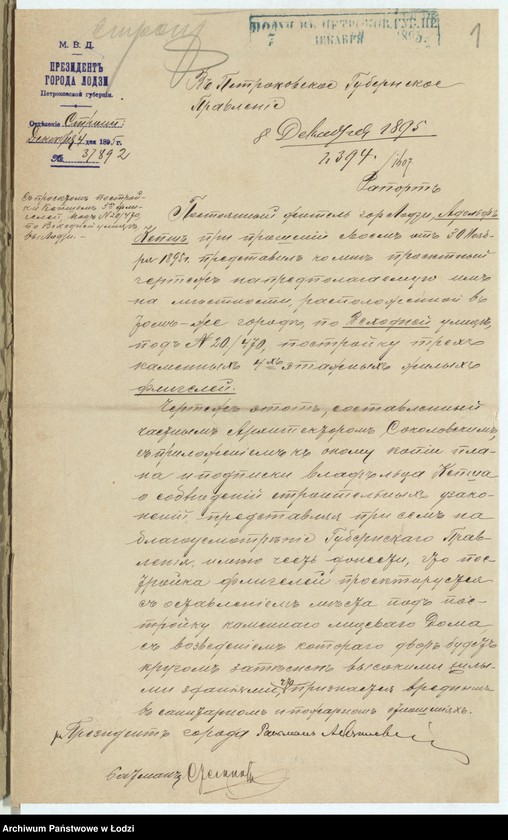 Строит
ПОЛУЧ. ВЪ ПЕТРОКОВ. ГУБ. ПР.
7 ДЕКАБРЯ 1895
1
М. В. Д.
ПРЕЗИДЕНТЪ
ГОРОДА ЛОДЗИ
Петроковской губерніи.
Отдѣленіе Строит.
Декабря 4 дня 1895 г.
№ 37892
Въ Петроковское Губернское
Правленіе
8 Декабря 1895
2394/1607
Рапортъ
съ проектомъ построй-
ки
лей, подъ № 20/470
по Всходней улицѣ
въ Лодзи.
Постоянный житель гор. Лодзи, Адольфъ
Кепша при прошеніи своемъ отъ 30 Нояб-
ря 1895 г. представилъ ко мнѣ проектный
чертежъ на предполагаемую имъ
на мѣстности, расположенной въ
томъ-же городѣ, по Всходней улицѣ,
подъ № 20/470, постройку трехъ
каменныхъ 4хъ этажныхъ жилыхъ
флигелей.
Чертежъ этотъ, составленный
частнымъ Архитекторомъ Соколовскимъ,
съ приложеніемъ къ оному копіи пла-
на и подписки владѣльца Кепша
о соблюденіи строительныхъ зако-
новъ представляя при семъ на
благоусмотрѣніе Губернскаго Прав-
ленія, имѣю честь донести, что пос-
тройка флигелей проектируется
съ оставленіемъ мѣста подъ пос-
тройку каменнаго лицеваго дома
съ возведеніемъ котораго дворъ будетъ
кругомъ затѣсненъ высокими жилы-
ми зданіями, что признается вреднымъ
въ санитарномъ и пожарномъ отношеніяхъ.
Президентъ города
Archiwum Państwowe w Łodzi